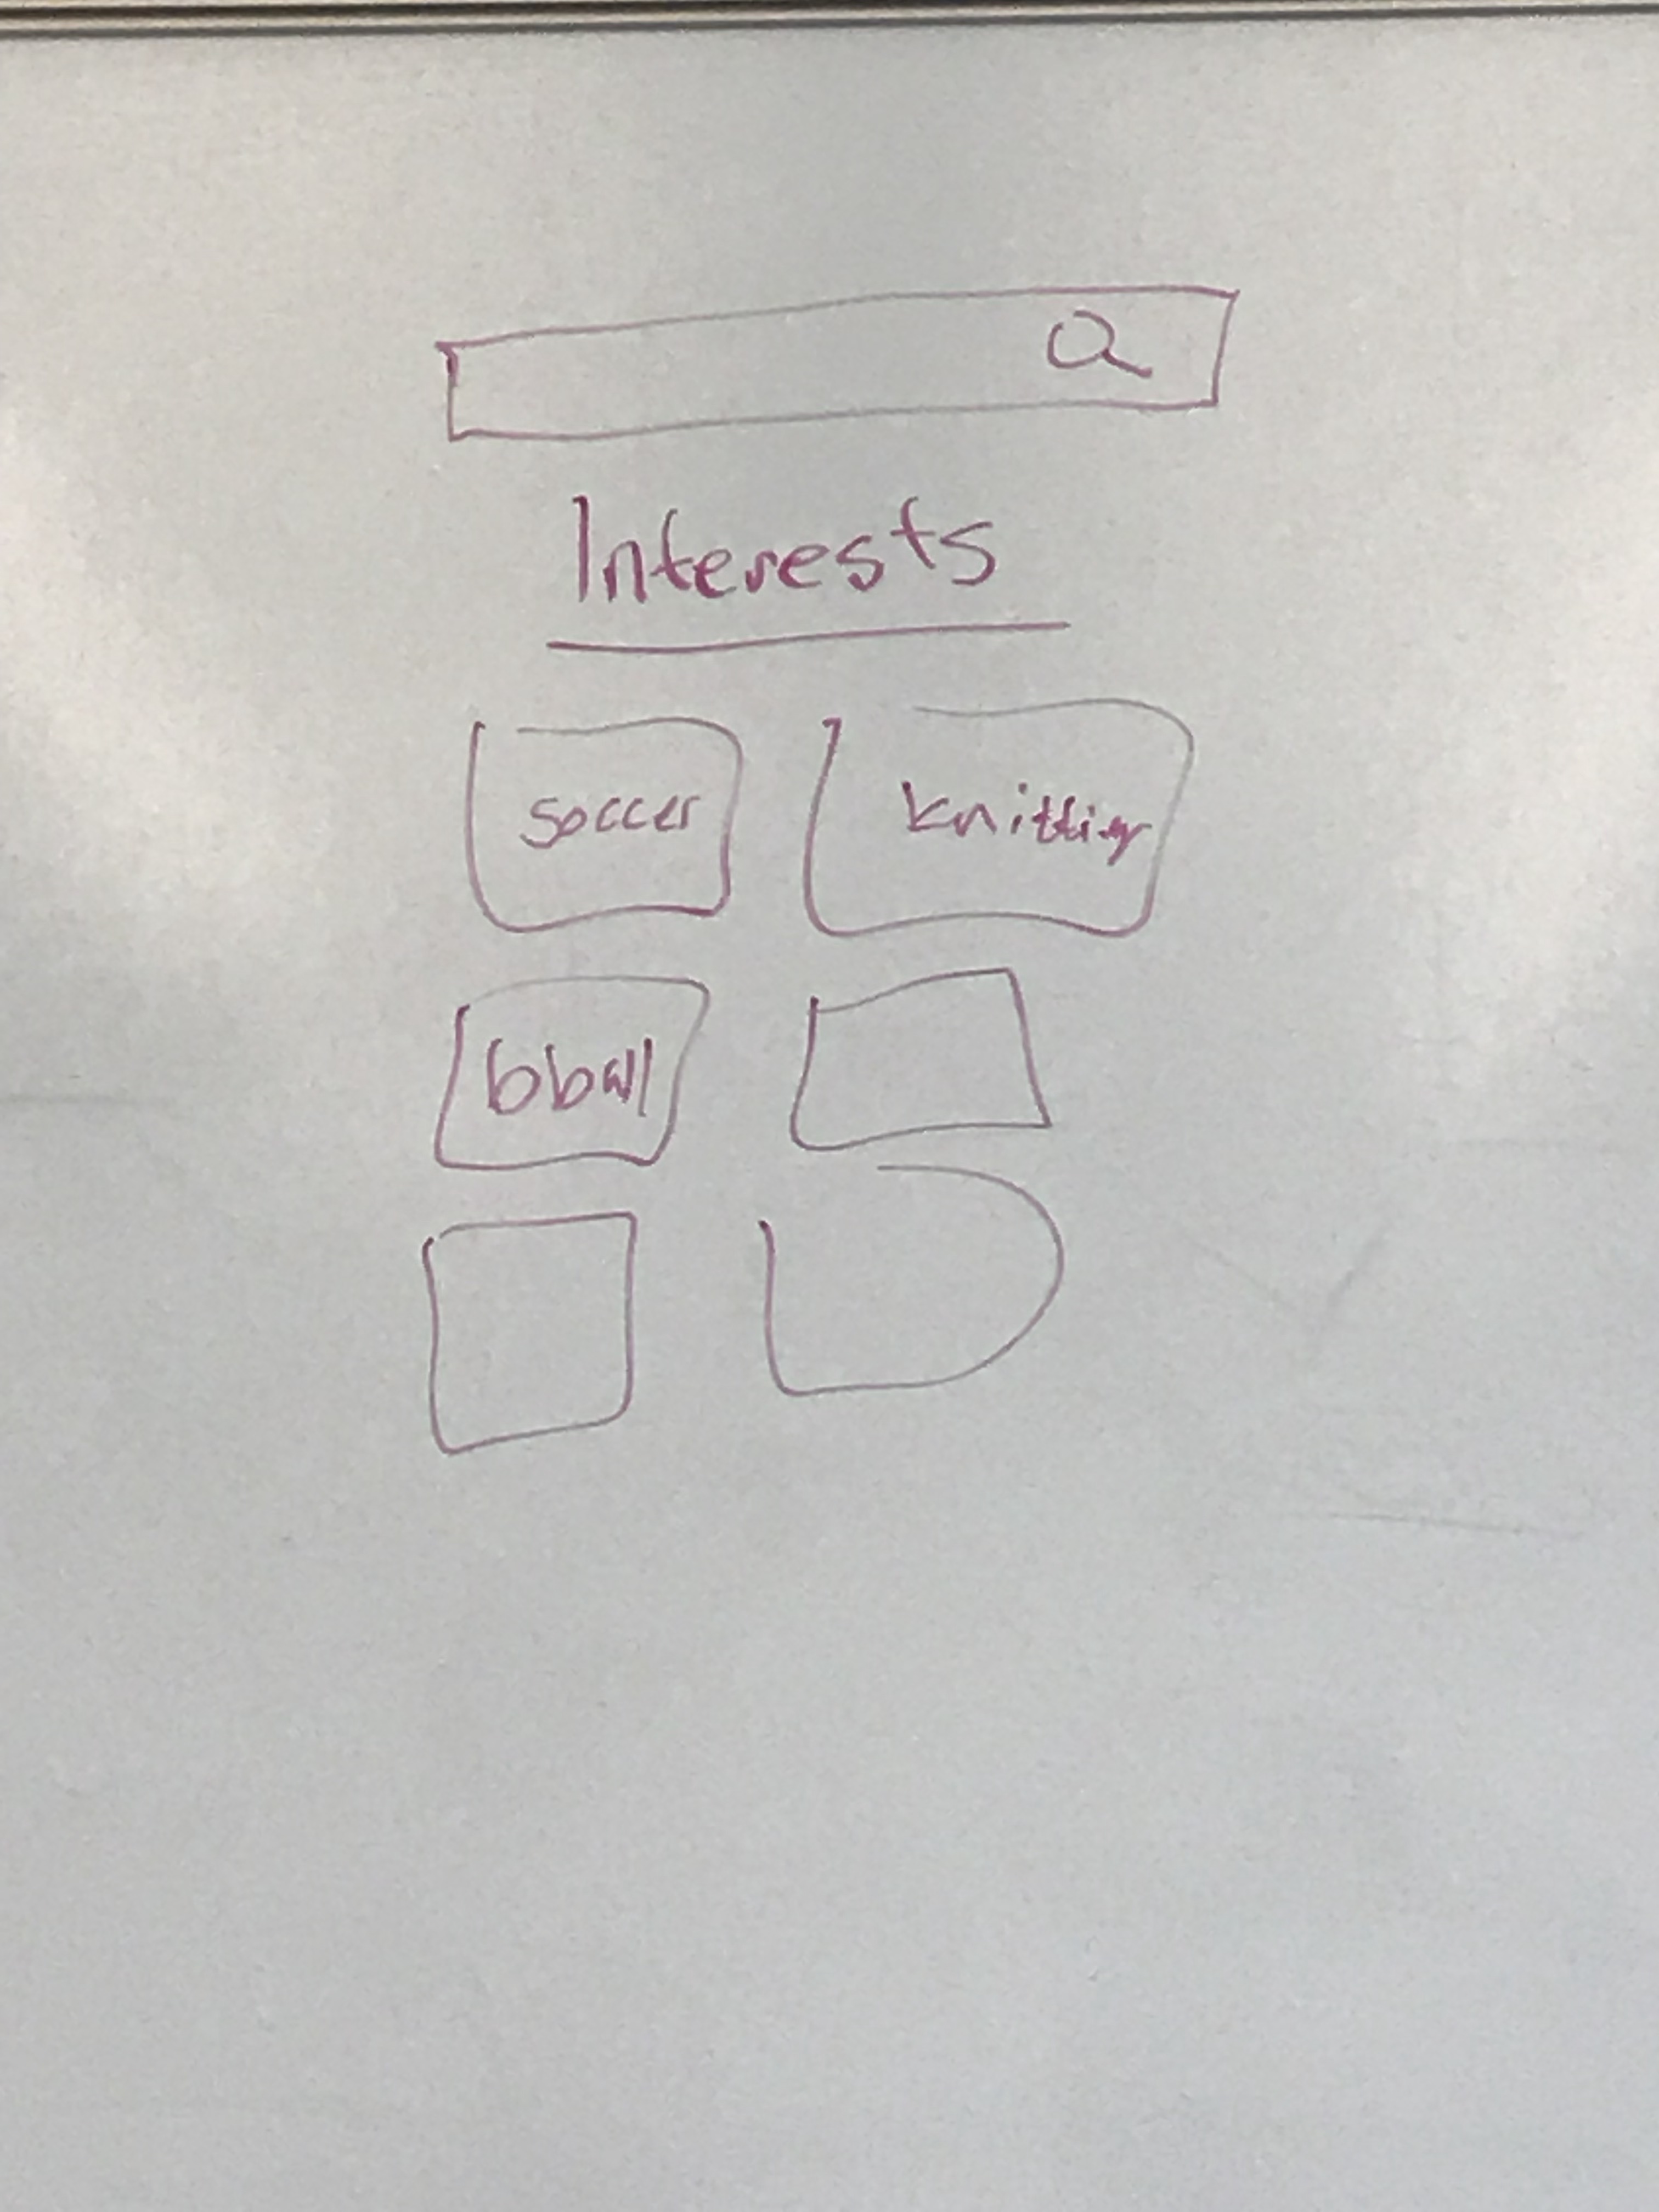 Interests
soccer knitting
bball